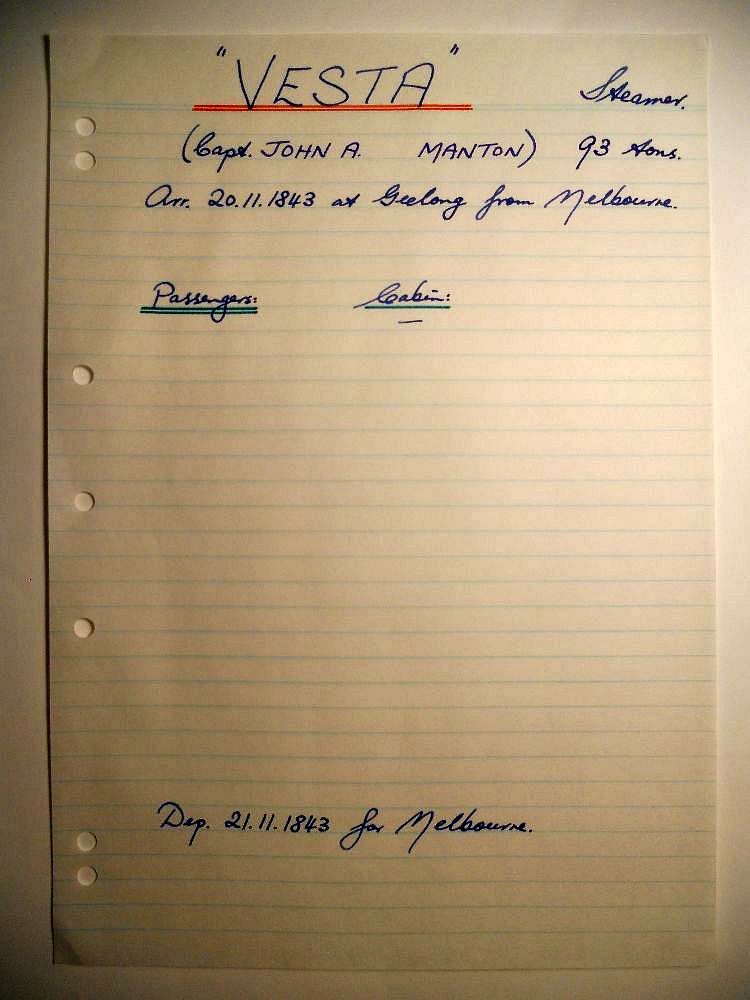 "VESTA" Steamer.
(Capt. JOHN A. MANTON) 93 tons.
Arr. 20.11.1843 at Geelong from Melbourne.
Passengers: Cabin:
—
Dep. 21.11.1843 for Melbourne.